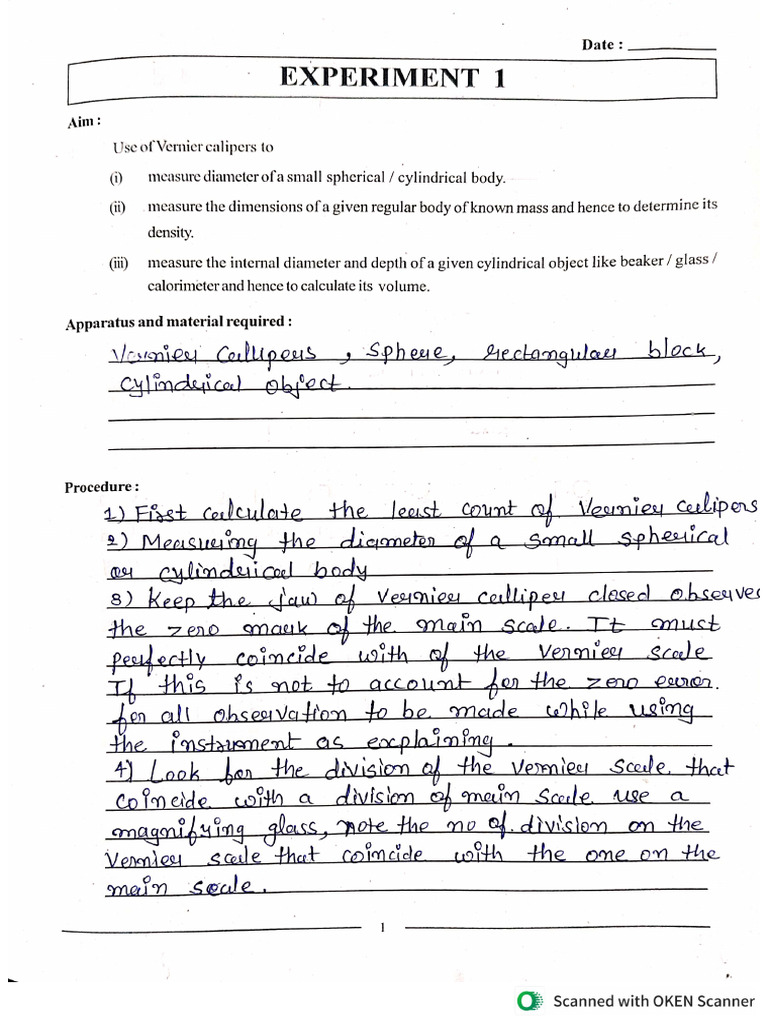 Date :
EXPERIMENT 1
Aim :
Use of Vernier calipers to
(i) measure diameter of a small spherical / cylindrical body.
(ii) measure the dimensions of a given regular body of known mass and hence to determine its
density.
(iii) measure the internal diameter and depth of a given cylindrical object like beaker / glass /
calorimeter and hence to calculate its volume.
Apparatus and material required :
Vernier Callipers , Sphere, rectangular block,
Cylinderical object.
Procedure :
1) First calculate the least count of Vernier calipers
2) Measuring the diameter of a small spherical
or cylinderical body
3) Keep the jaw of Vernier calliper closed observe
the zero mark of the main scale. It must
perfectly coincide with of the Vernier scale
If this is not to account for the zero error.
for all observation to be made while using
the instrument as explaining .
4) Look for the division of the Vernier scale that
coincide with a division of main scale use a
magnifying glass, note the no of. division on the
Vernier scale that coincide with the one on the
main scale.
1
Scanned with OKEN Scanner